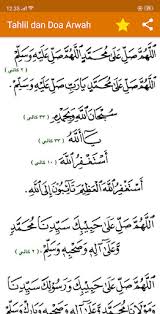 12.35
Tahlil dan Doa Arwah
اَللّٰهُمَّ صَلِّ عَلَى مُحَمَّدٍ اَللّٰهُمَّ صَلِّ عَلَيْهِ وَسَلِّمْ
( ٢ كالي )
اَللّٰهُمَّ صَلِّ عَلَى مُحَمَّدٍ يَارَبِّ صَلِّ عَلَيْهِ وَسَلِّمْ
سُبْحَانَ اللّٰهِ وَبِحَمْدِهِ ( ٣٣ كالي )
يَا اَللّٰهُ ( ٣٣ كالي )
أَسْتَغْفِرُ اللّٰهَ ( كالي )
أَسْتَغْفِرُ اللّٰهَ الْعَظِيْمَ تَائِبُوْنَ إِلَى اللّٰهِ
اَللّٰهُمَّ صَلِّ عَلَى حَبِيْبِكَ سَيِّدِنَا مُحَمَّدٍ
وَعَلَى آلِهِ وَصَحْبِهِ وَسَلِّمْ ( ٢ كالي )
اَللّٰهُمَّ صَلِّ عَلَى حَبِيْبِكَ وَرَسُوْلِكَ سَيِّدِنَا
وَمَوْلَانَا مُحَمَّدٍ وَعَلَى آلِهِ وَصَحْبِهِ وَبَارِكْ وَسَلِّمْ